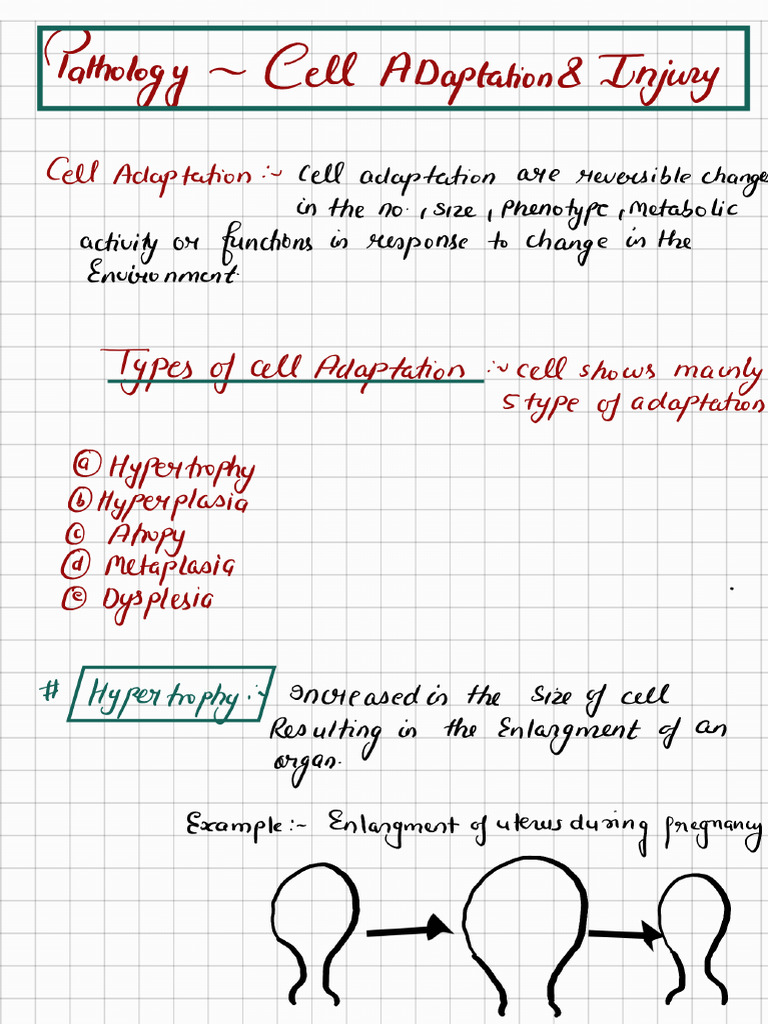 Pathology ~ Cell Adaptation & Injury
Cell Adaptation :- Cell adaptation are reversible change
in the no., size, Phenotype, Metabolic
activity or functions in response to change in the
Environment.
Types of cell Adaptation :- cell shows mainly
5 type of adaptation
(a) Hypertrophy
(b) Hyperplasia
(c) Atropy
(d) Metaplasia
(e) Dysplesia
# Hypertrophy :- Increased in the size of cell
Resulting in the Enlargment of an
organ.
Example :- Enlargment of uterus during pregnancy